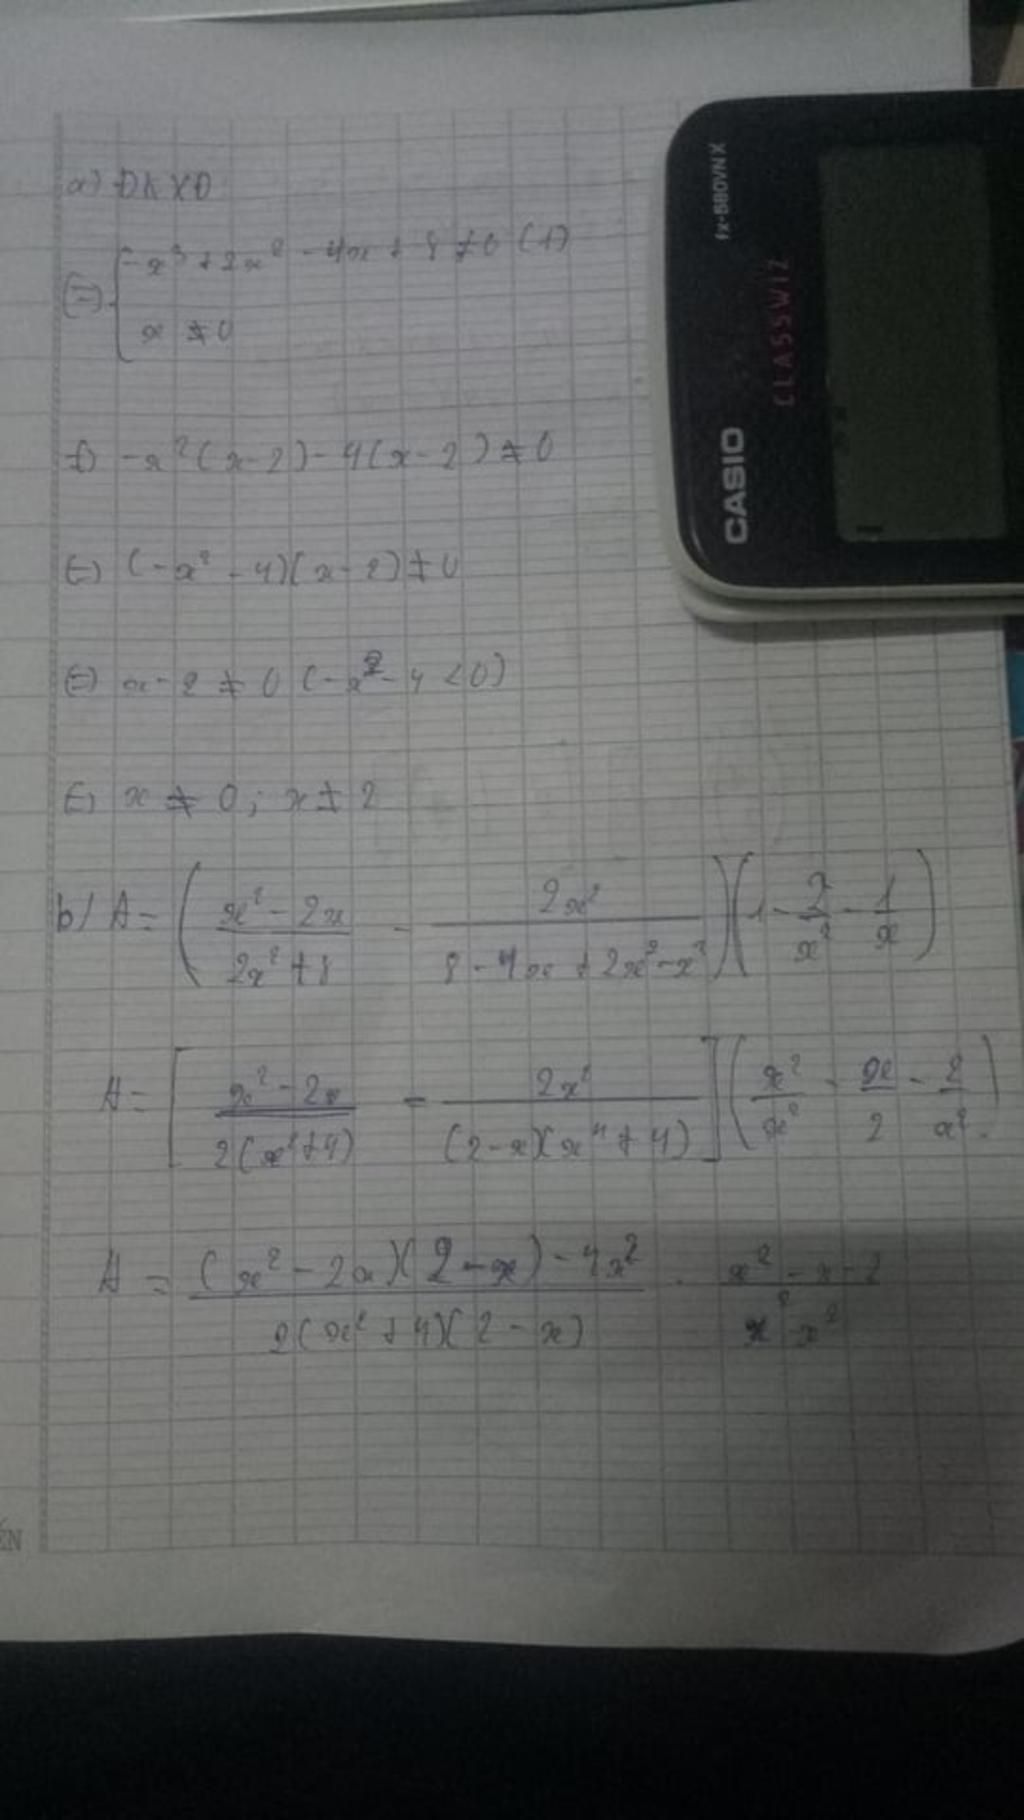 a) ĐKXĐ
(=) { -x³ + 2x² - 4x + 8 ≠ 0 (1)
x ≠ 0
1) -x²(x-2) - 4(x-2) ≠ 0
(=) (-x² - 4)(x-2) ≠ 0
(=) x - 2 ≠ 0 (-x² - 4 < 0)
(=) x ≠ 0 ; x ≠ 2
b/ A = ( (x² - 2x)/(2x² + 8) - 2x²/(8 - 4x + 2x² - x³) )( 1 - 2/x² - 1/x )
A = [ (x² - 2x)/(2(x² + 4)) - 2x²/((2-x)(x² + 4)) ]( x²/x² - x/2 - 2/x² )
A = ((x² - 2x)(2 - x) - 4x²)/(2(x² + 4)(2 - x)) . (x² - x - 2)/x²
fx-580VN X
CLASSWIZ
CASIO